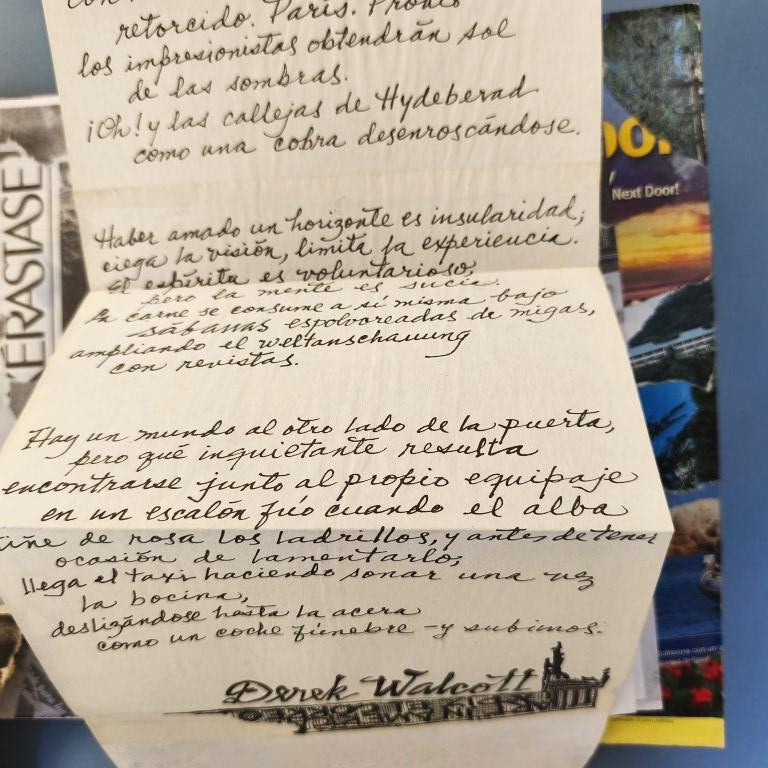 retorcido. París. Pronto
los impresionistas obtendrán sol
de las sombras.
¡Oh! y las callejas de Hydeberad
como una cobra desenroscándose.
Haber amado un horizonte es insularidad;
ciega la visión, limita la experiencia.
El espíritu es voluntarioso,
pero la mente es sucia.
La carne se consume a sí misma bajo
sábanas espolvoreadas de migas,
ampliando el weltanschauung
con revistas.
Hay un mundo al otro lado de la puerta,
pero qué inquietante resulta
encontrarse junto al propio equipaje
en un escalón frío cuando el alba
tiñe de rosa los ladrillos, y antes de tener
ocasión de lamentarlo,
llega el taxi haciendo sonar una vez
la bocina,
deslizándose hasta la acera
como un coche fúnebre - y subimos.
Derek Walcott
KERASTASE
Next Door!